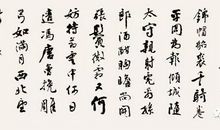 錦帽貂裘千騎卷
平岡為報傾城隨
太守親射虎看孫
郎酒酣胸膽尚開
張鬢微霜又何
妨持節雲中何日
遣馮唐會挽雕
弓如滿月西北望